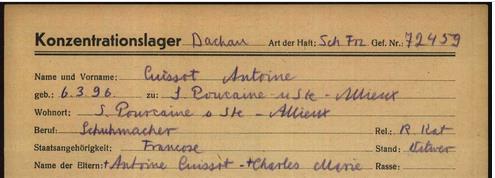 Konzentrationslager Dachau Art der Haft: Sch Frz Gef. Nr.: 72459
Name und Vorname: Cuissot Antoine
geb.: 6.3.96. zu: S. Pourcaine s/ Ste - Allieux
Wohnort: S. Pourcaine s Ste - Allieux
Beruf: Schuhmacher Rel.: R. Kat
Staatsangehörigkeit: Francose Stand: Witwer
Name der Eltern: +Antoine Cuissot - +Charles Marie Rasse: